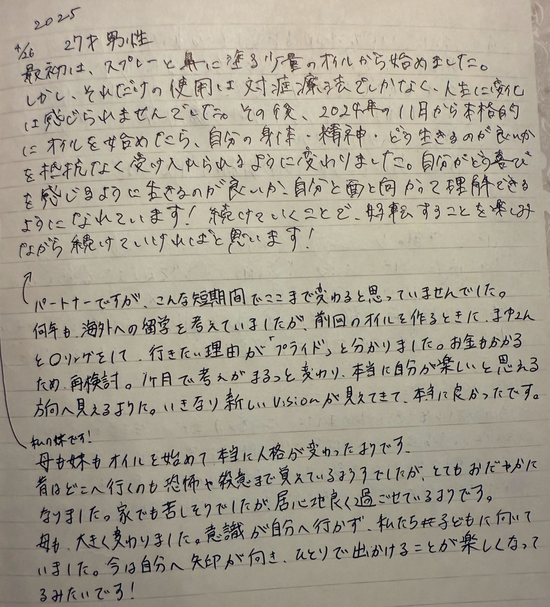 2025
4/26 27才 男性
最初は、スプレーと鼻に塗る少量のオイルから始めました。
しかし、それだけの使用は対症療法でしかなく、人生に変化
は感じられませんでした。その後、2024年の11月から本格的
にオイルを始めたら、自分の身体・精神・どう生きるのが良いか
を抵抗なく受け入れられるように変わりました。自分がどう喜び
を感じるように生きるのが良いか、自分と面と向かって理解できる
ようになれています!続けていくことで、好転することを楽しみ
ながら続けていければと思います!
パートナーですが、こんな短期間でここまで変わると思っていませんでした。
何年も、海外への留学を考えていましたが、前回のオイルを作るときに、まゆさん
とOリングをして、行きたい理由が「プライド」と分かりました。お金もかかる
ため、再検討。1ヶ月で考えがまるっと変わり、本当に自分が楽しいと思える
方向へ見えるように。いきなり新しいVisionが見えてきて、本当に良かったです。
私の妹です!
母も妹もオイルを始めて、本当に人格が変わったようです。
昔はどこへ行くのも恐怖や緊急まで覚えているようすでしたが、とてもおだやかに
なりました。家でも苦しそうでしたが、居心地良く過ごせているようです。
母も、大きく変わりました。意識が自分へ行かず、私たち子どもに向いて
いました。今は自分へ矢印が向き、ひとりで出かけることが楽しくなって
るみたいです!